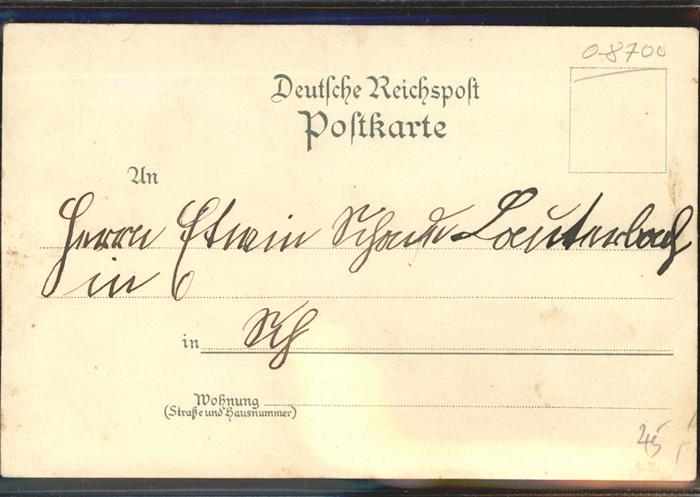 0-8700
Deutsche Reichspost
Postkarte
An
Herrn Erwin Lauterbach
in
in Sch
Wohnung
(Straße und Hausnummer)
45